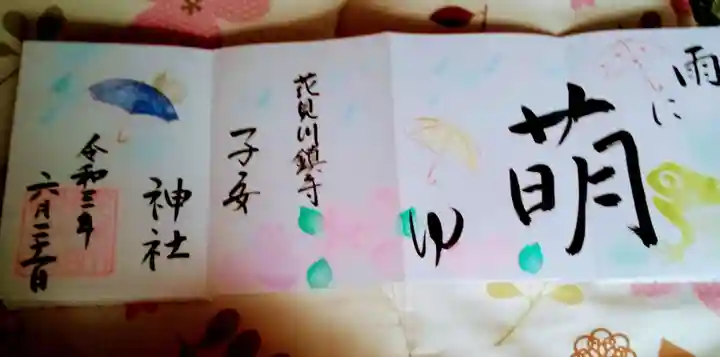 雨に
萌
ゆ
花見川鎮守
子安
神社
令和三年
六月